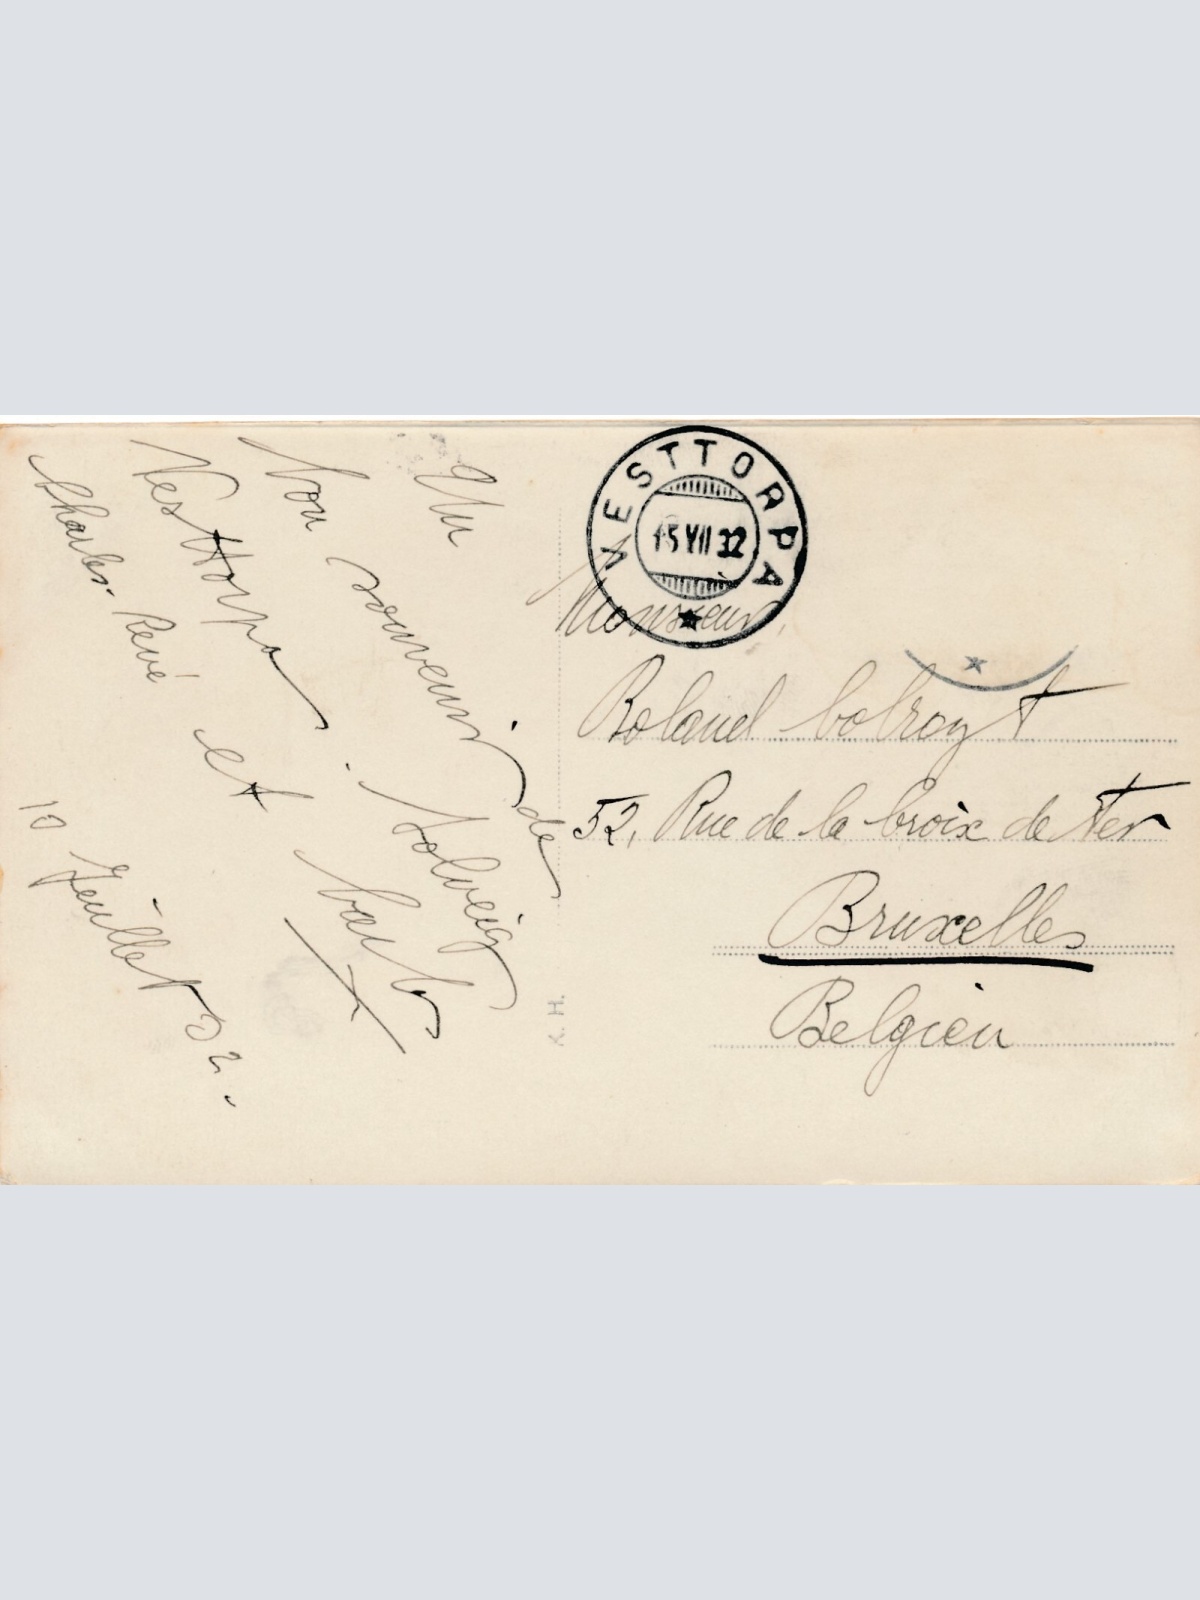 Un
bon souvenir de
Vesttorpa. Solveig
et
Charles-René
10 Juillet 32.
VESTTORPA
15 VII 32
Monsieur,
Roland
52, Rue de la Croix de Fer
Bruxelles
Belgien